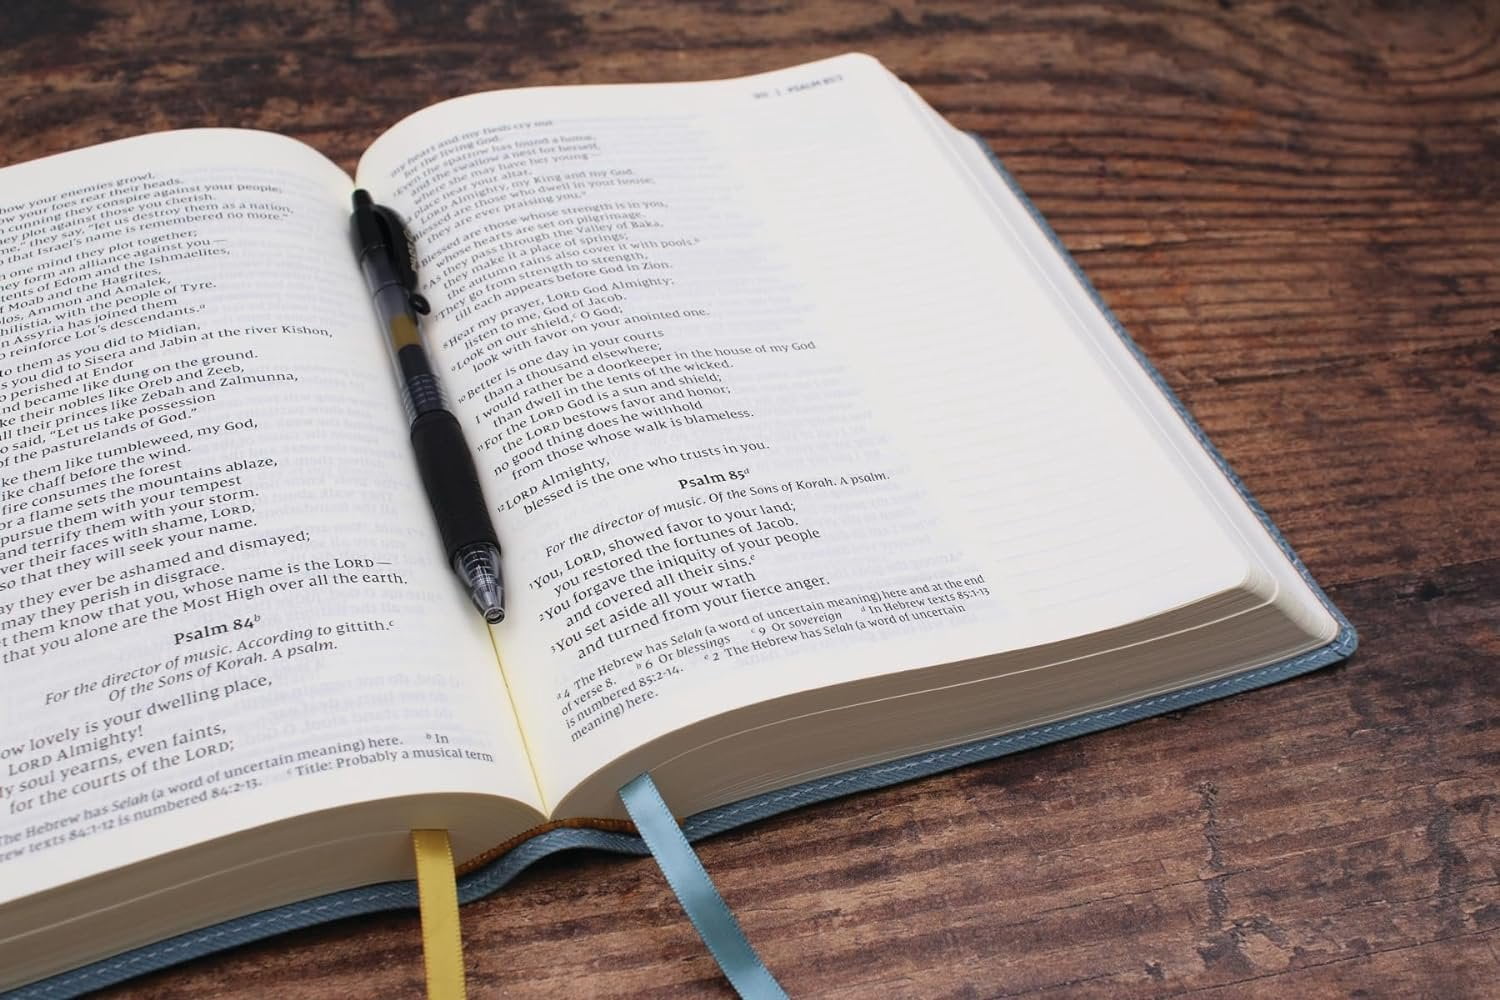 how your enemies growl,
how your foes rear their heads.
cunning they conspire against your people;
they plot against those you cherish.
me," they say, "let us destroy them as a nation,
that Israel's name is remembered no more."
one mind they plot together;
they form an alliance against you—
tents of Edom and the Ishmaelites,
of Moab and the Hagrites,
Ammon and Amalek,
with the people of Tyre.
Assyria has joined them
to reinforce Lot's descendants.ᵃ
to them as you did to Midian,
as you did to Sisera and Jabin at the river Kishon,
perished at Endor
and became like dung on the ground.
their nobles like Oreb and Zeeb,
all their princes like Zebah and Zalmunna,
said, "Let us take possession
of the pasturelands of God."
them like tumbleweed, my God,
like chaff before the wind.
fire consumes the forest
or a flame sets the mountains ablaze,
pursue them with your tempest
and terrify them with your storm.
their faces with shame, LORD,
so that they will seek your name.
may they ever be ashamed and dismayed;
may they perish in disgrace.
let them know that you, whose name is the LORD—
that you alone are the Most High over all the earth.
Psalm 84ᵇ
For the director of music. According to gittith.ᶜ
Of the Sons of Korah. A psalm.
How lovely is your dwelling place,
LORD Almighty!
My soul yearns, even faints,
for the courts of the LORD;
The Hebrew has Selah (a word of uncertain meaning) here. ᵇ In
texts 84:1-12 is numbered 84:2-13. ᶜ Title: Probably a musical term
PSALM 85:3
my heart and my flesh cry out
for the living God.
³Even the sparrow has found a home,
and the swallow a nest for herself,
where she may have her young—
a place near your altar,
LORD Almighty, my King and my God.
Blessed are those who dwell in your house;
they are ever praising you.ᵃ
Blessed are those whose strength is in you,
whose hearts are set on pilgrimage.
⁶As they pass through the Valley of Baka,
they make it a place of springs;
the autumn rains also cover it with pools.ᵇ
⁷They go from strength to strength,
till each appears before God in Zion.
⁸Hear my prayer, LORD God Almighty;
listen to me, God of Jacob.
⁹Look on our shield,ᶜ O God;
look with favor on your anointed one.
¹⁰Better is one day in your courts
than a thousand elsewhere;
I would rather be a doorkeeper in the house of my God
than dwell in the tents of the wicked.
¹¹For the LORD God is a sun and shield;
the LORD bestows favor and honor;
no good thing does he withhold
from those whose walk is blameless.
¹²LORD Almighty,
blessed is the one who trusts in you.
Psalm 85ᵈ
For the director of music. Of the Sons of Korah. A psalm.
¹You, LORD, showed favor to your land;
you restored the fortunes of Jacob.
²You forgave the iniquity of your people
and covered all their sins.ᵉ
³You set aside all your wrath
and turned from your fierce anger.
ᵃ 4 The Hebrew has Selah (a word of uncertain meaning) here and at the end
of verse 8. ᵇ 6 Or blessings ᶜ 9 Or sovereign ᵈ In Hebrew texts 85:1-13
is numbered 85:2-14. ᵉ 2 The Hebrew has Selah (a word of uncertain
meaning) here.